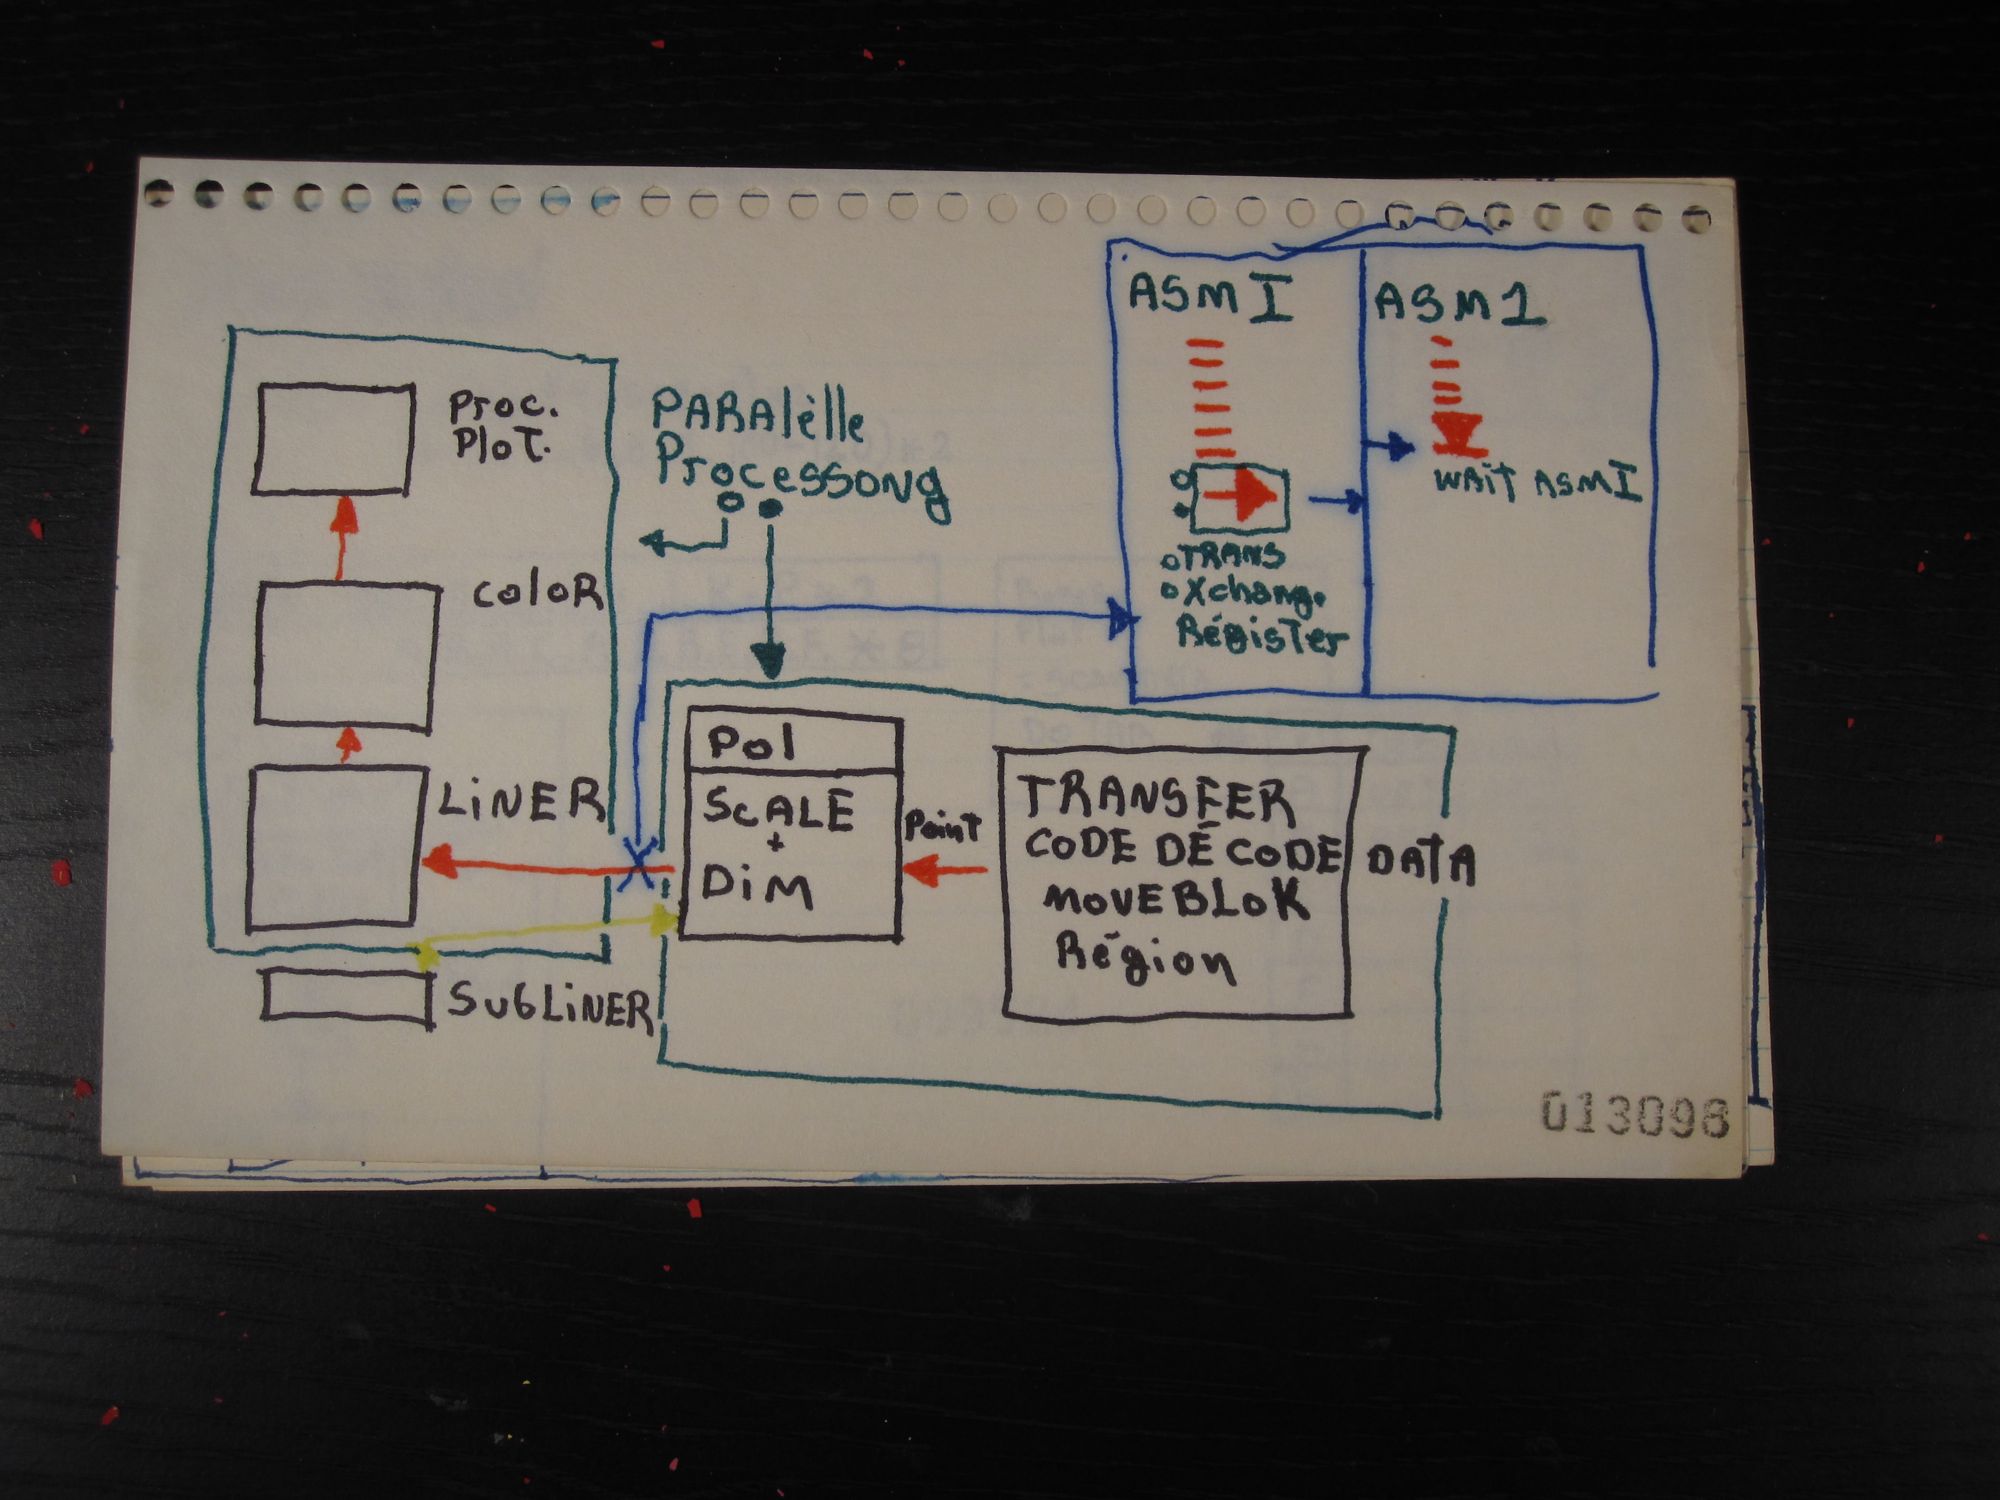 ASM I
ASM 1
Proc.
Plot.
PARAlèlle
Processong
WAIT ASM I
TRANS
Xchang.
Régister
Color
Pol
SCALE
+
DiM
LiNER
Point
TRANSFER
CODE DÉCODE DATA
MOVEBLOK
Région
SUBLiNER
013098